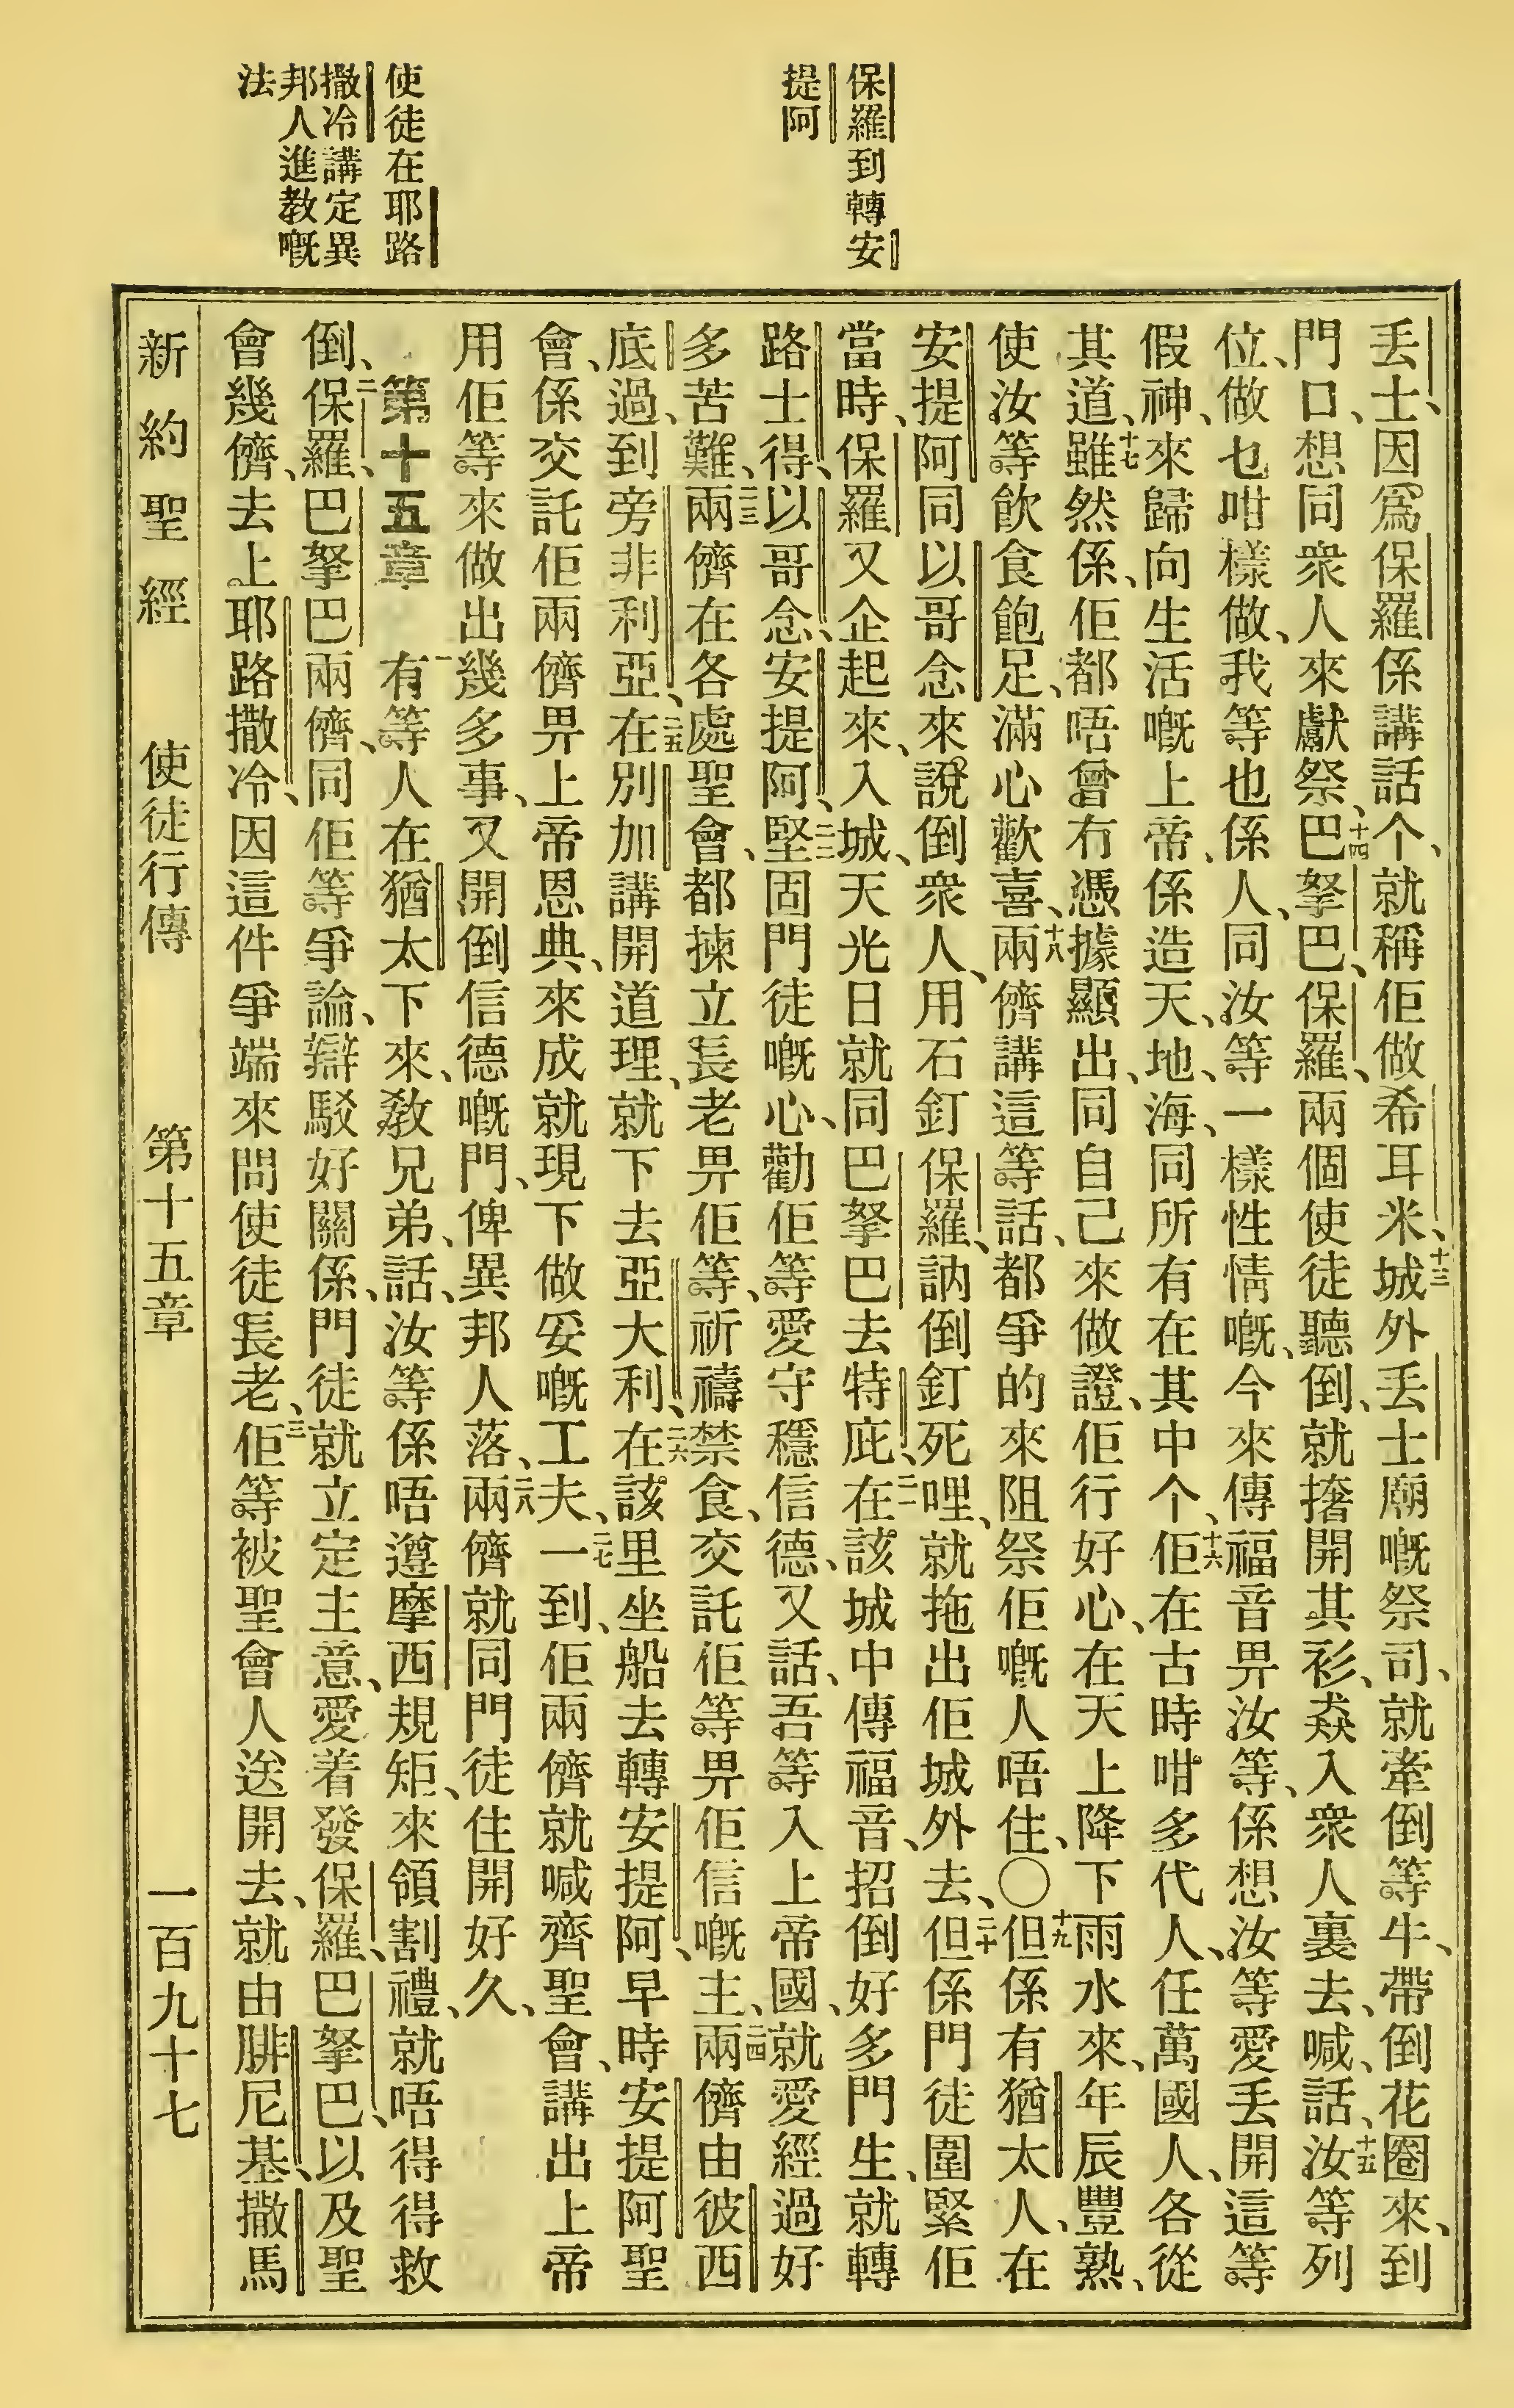 保羅到轉安
提阿
使徒在耶路
撒冷講定異
邦人進教嘅
法
丢士、因爲保羅係講話个、就稱佢做希耳米、十三城外丢士廟嘅祭司、就牽倒等牛、帶倒花圈來、到
門口、想同衆人來獻祭、十四巴拏巴、保羅、兩個使徒聽倒、就撦開其衫、猋入衆人裏去、喊、話、十五汝等列
位、做乜咁樣做、我等也係人、同汝等一樣性情嘅、今來傳福音畀汝等、係想汝等愛丢開這等
假神、來歸向生活嘅上帝、係造天、地、海、同所有在其中个、十六佢在古時咁多代人、任萬國人、各從
其道、十七雖然係、佢都唔曾冇憑據顯出、同自己來做證、佢行好心、在天上降下雨水來、年辰豐熟、
使汝等飲食飽足、滿心歡喜、十八兩儕講這等話、都爭的來阻祭佢嘅人唔住、〇十九但係有猶太人、在
安提阿同以哥念來、說倒衆人、用石釘保羅、訥倒釘死哩、就拖出佢城外去、二十但係門徒圍緊佢
當時、保羅又企起來、入城、天光日就同巴拏巴去特庇、二一在該城中傳福音、招倒好多門生、就轉
路士得、以哥念、安提阿、二二堅固門徒嘅心、勸佢等愛守穩信德、又話、吾等入上帝國、就愛經過好
多苦難、二三兩儕在各處聖會、都揀立長老畀佢等、祈禱禁食、交託佢等畀佢信嘅主、二四兩儕由彼西
底過、到旁非利亞、二五在別加講開道理、就下去亞大利、二六在該里坐船去轉安提阿、早時安提阿聖
會、係交託佢兩儕畀上帝恩典、來成就現下做妥嘅工夫、二七一到、佢兩儕就喊齊聖會、講出上帝
用佢等來做出幾多事、又開倒信德嘅門、俾異邦人落、二八兩儕就同門徒住開好久、
第十五章　一有等人在猶太下來、教兄弟、話、汝等係唔遵摩西規矩、來領割禮、就唔得得救
倒、二保羅、巴拏巴兩儕、同佢等爭論、辯駁好關係、門徒就立定主意、愛着發保羅、巴拏巴、以及聖
會幾儕、去上耶路撒冷、因這件爭端來問使徒長老、三佢等被聖會人送開去、就由腓尼基、撒馬
新約聖經　使徒行傳　第十五章　一百九十七